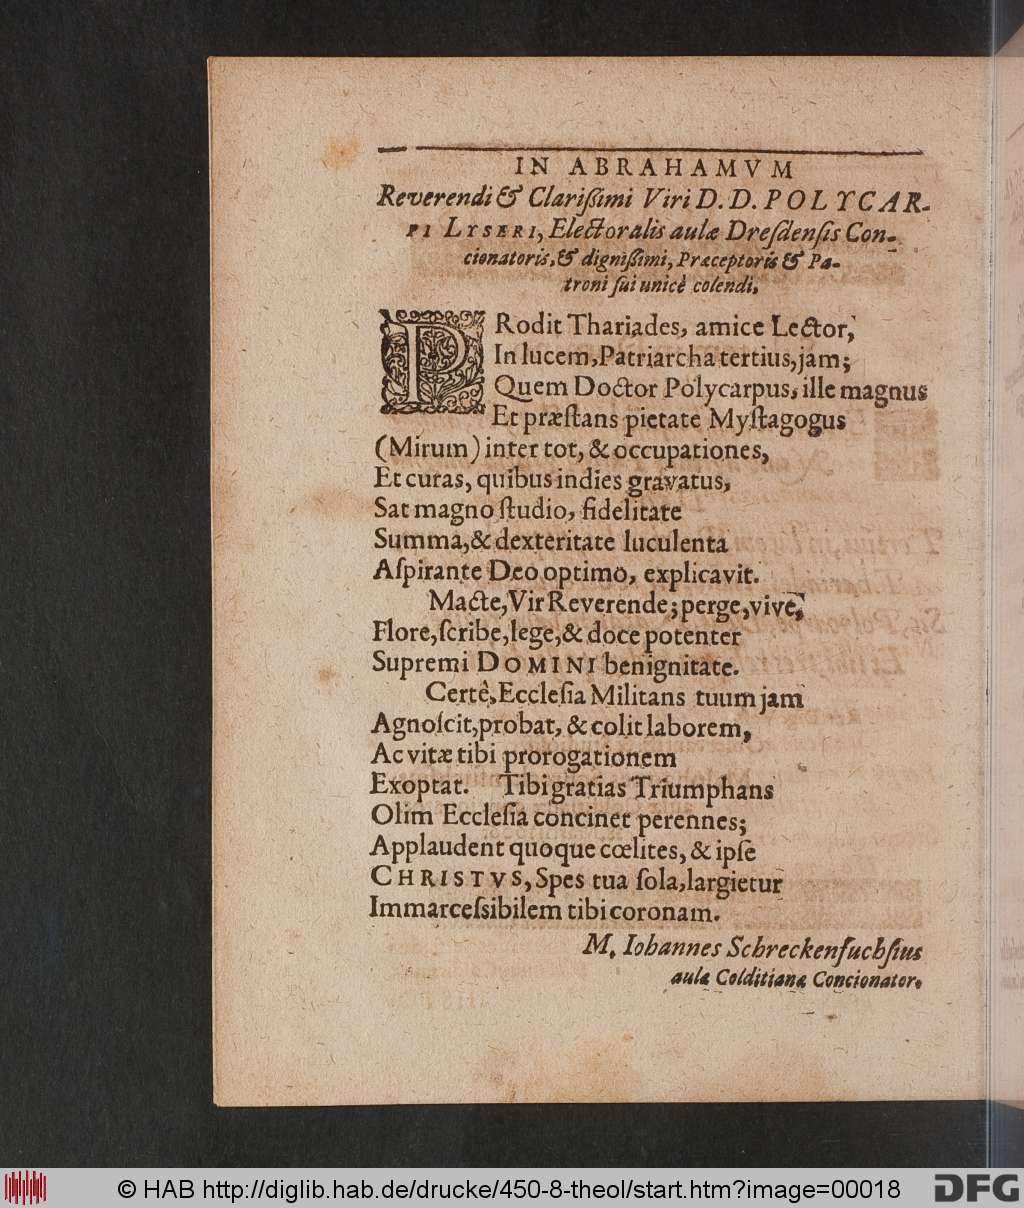 IN ABRAHAMVM
Reverendi & Clarißimi Viri D. D. POLYCAR-
PI LYSERI, Electoralis aulæ Dreſdenſis Con-
cionatoris, & dignißimi, Præceptoris & Pa-
troni ſui unicè colendi.
PRodit Thariades, amice Lector,
In lucem, Patriarcha tertius, jam;
Quem Doctor Polycarpus, ille magnus
Et præſtans pietate Myſtagogus
(Mirum) inter tot, & occupationes,
Et curas, quibus indies gravatus,
Sat magno ſtudio, fidelitate
Summa, & dexteritate luculenta
Aſpirante Deo optimo, explicavit.
Macte, Vir Reverende; perge, vive,
Flore, ſcribe, lege, & doce potenter
Supremi DOMINI benignitate.
Certè, Eccleſia Militans tuum jam
Agnoſcit, probat, & colit laborem,
Ac vitæ tibi prorogationem
Exoptat. Tibi gratias Triumphans
Olim Eccleſia concinet perennes;
Applaudent quoque cœlites, & ipſe
CHRISTVS, Spes tua ſola, largietur
Immarceſsibilem tibi coronam.
M. Iohannes Schreckenfuchſius
aulæ Colditianæ Concionator.
© HAB http://diglib.hab.de/drucke/450-8-theol/start.htm?image=00018
DFG